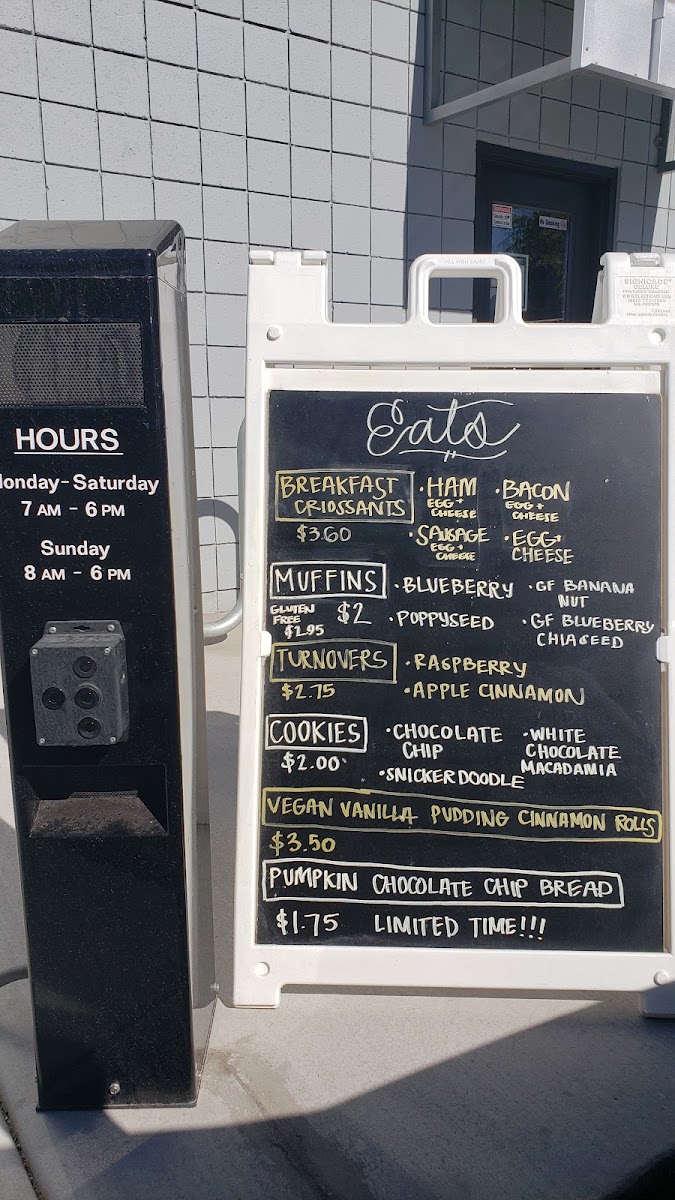 HOURS
Monday-Saturday
7 AM - 6 PM
Sunday
8 AM - 6 PM
SIGNICADE®
DELUXE
Eats
BREAKFAST
CRIOSSANTS
$3.60
• HAM
EGG +
CHEESE
• BACON
EGG +
CHEESE
• SAUSAGE
EGG +
CHEESE
• EGG +
CHEESE
MUFFINS
GLUTEN
FREE
$2.95
$2
• BLUEBERRY
• GF BANANA
NUT
• POPPYSEED
• GF BLUEBERRY
CHIASEED
TURNOVERS
$2.75
• RASPBERRY
• APPLE CINNAMON
COOKIES
$2.00
• CHOCOLATE
CHIP
• WHITE
CHOCOLATE
MACADAMIA
• SNICKERDOODLE
VEGAN VANILLA PUDDING CINNAMON ROLLS
$3.50
PUMPKIN CHOCOLATE CHIP BREAD
$1.75 LIMITED TIME!!!